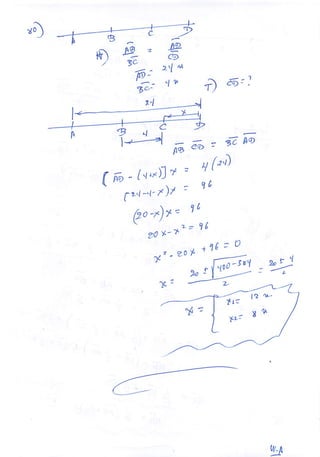 A B C D
H) AB/BC = AD/CD
AD = 24 m
BC = 4 m
T) CD = ?
24
x
A B C D
4
AB CD = BC AD
[AD - (4+x)] x = 4(24)
(24-4-x)x = 96
(20-x)x = 96
20x - x² = 96
x² - 20x + 96 = 0
x = 20 ± √400-384 / 2 = 20 ± 4 / 2
x₁ = 12 m.
x₂ = 8 m